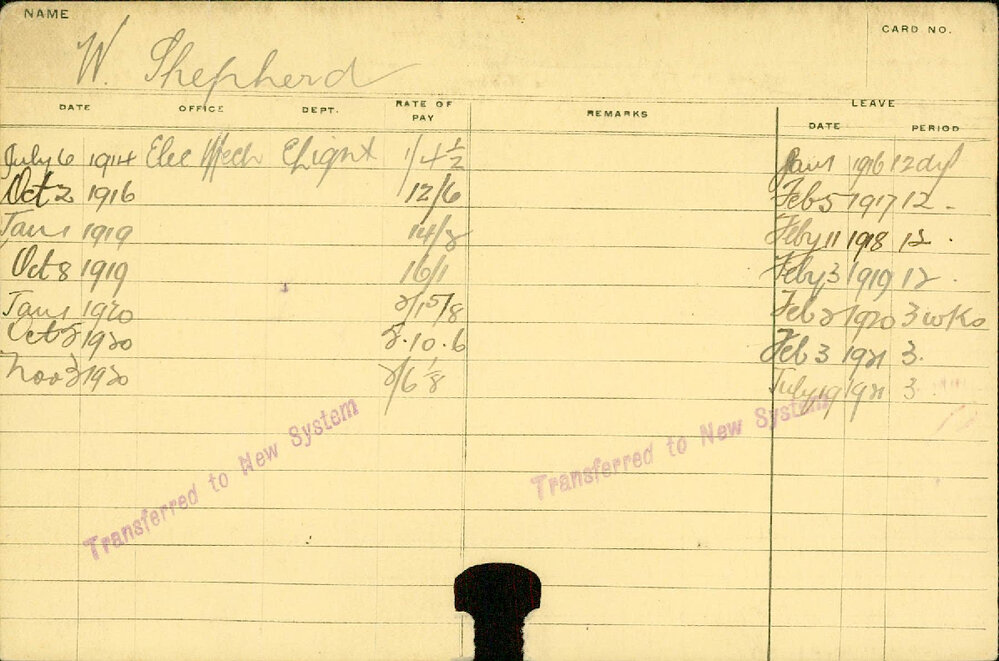 NAME
CARD NO.
W. Shepherd
DATE OFFICE DEPT. RATE OF PAY REMARKS LEAVE
DATE PERIOD
July 6 1914 Elec Mech ELight 1/4 1/2 Jan 1 1916 12 dys
Oct 2 1916 12/6 Feb 5 1917 12 .
Jan 1 1919 14/2 Feby 11 1918 12 .
Oct 8 1919 16/1 Feby 3 1919 12 .
Jan 1 1920 2/15/8 Feb 2 1920 3 wks
Oct 2 1920 2.10.6 Feb 3 1921 3.
Nov 3 1920 2/6 1/8 July 19 1921 3
Transferred to New System
Transferred to New System